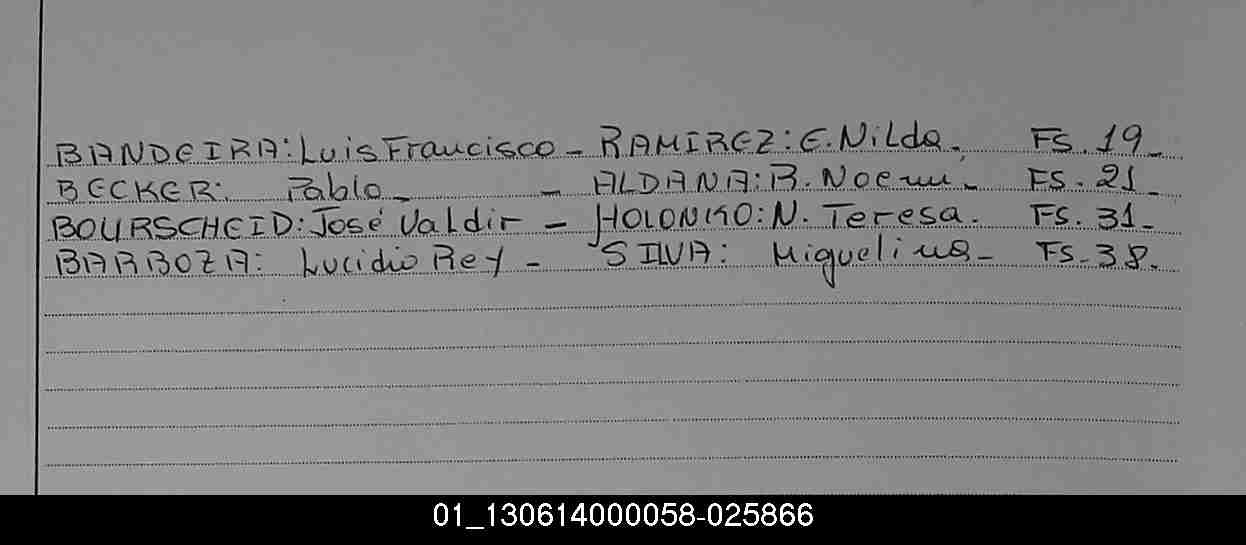 BANDEIRA: Luis Francisco - RAMIREZ: E. Nilda. FS. 19 -
BECKER: Pablo - - ALDANA: B. Noemi - FS. 21 -
BOURSCHEID: José Valdir - HOLONKO: N. Teresa. FS. 31 -
BARBOZA: Lucidio Rey - SILVA: Miguelina - FS - 38.
01_130614000058-025866